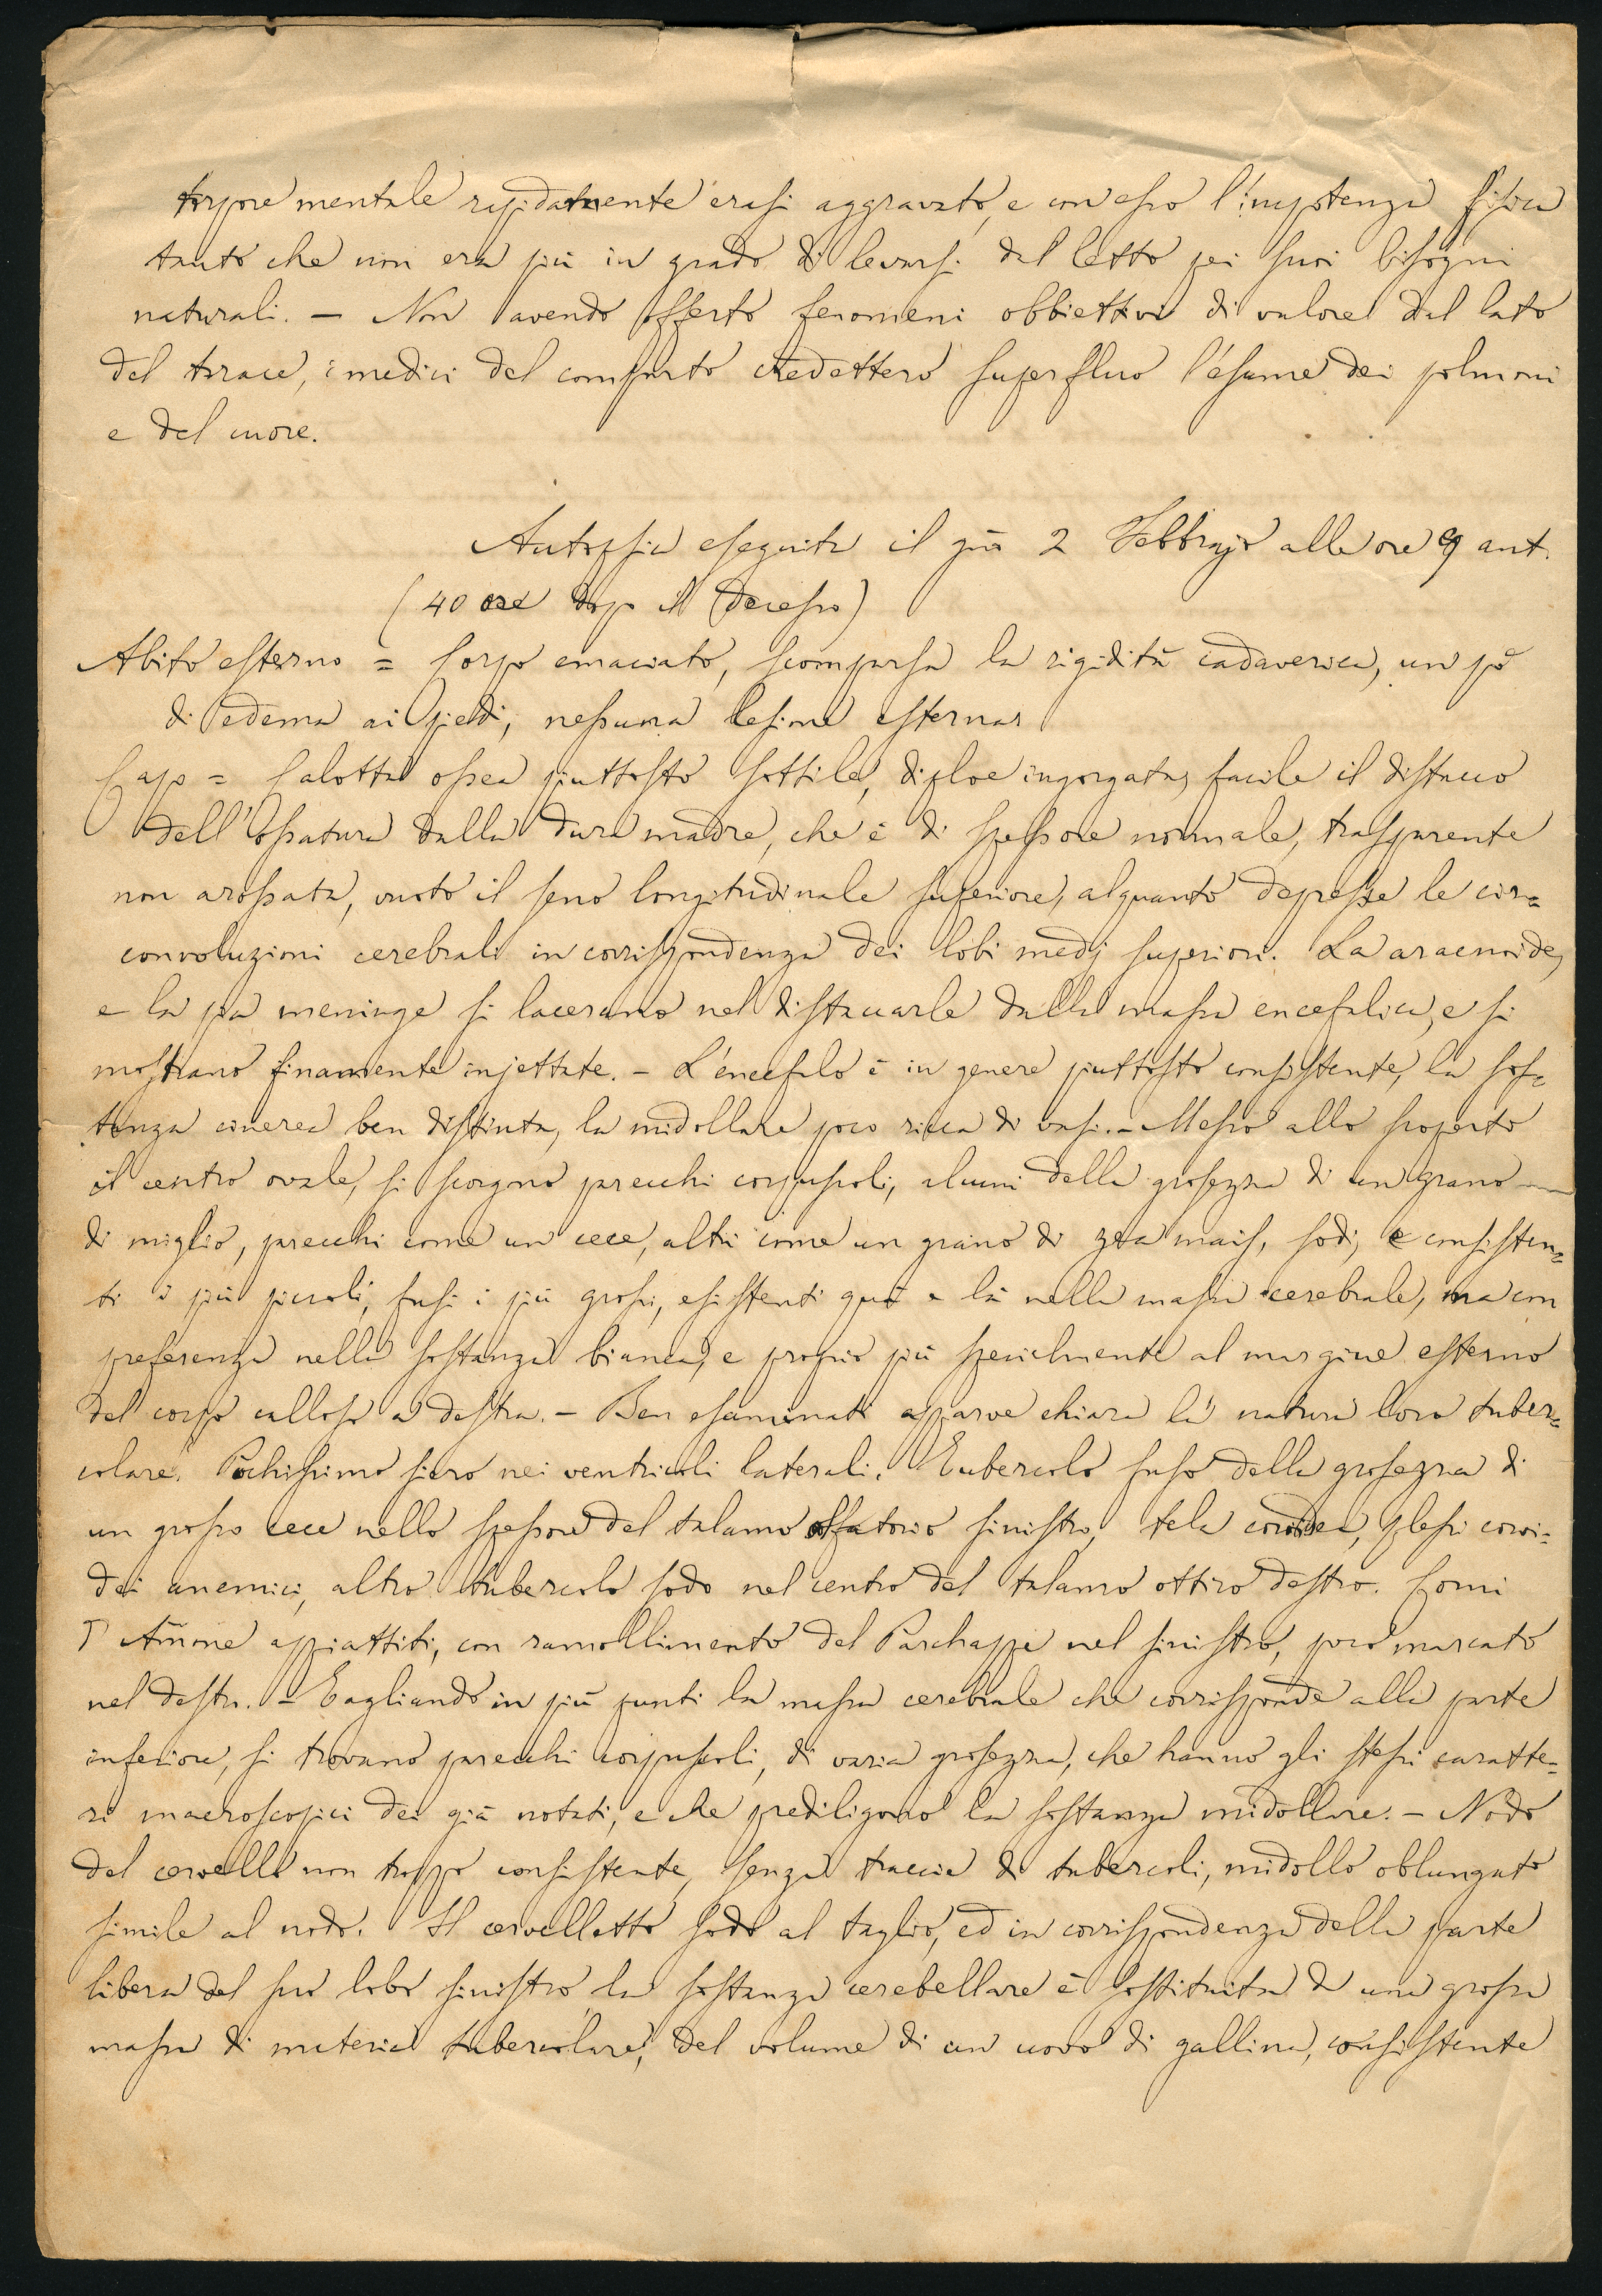 torpore mentale rapidamente erasi aggravato, e con esso l'impotenza fisica
tanto che non era più in grado di levarsi dal letto pei suoi bisogni
naturali. — Non avendo offerto fenomeni obbiettivi di valore dal lato
del torace, i medici del comparto credettero superfluo l'esame dei polmoni
e del cuore.
Autopsia eseguita il giā 2 Febbrajo alle ore 9 ant.
(40 ore dopo il decesso)
Abito esterno = Corpo emaciato, scomparsa la rigidità cadaverica, un pò
di edema ai piedi, nessuna lesione esterna.
Capo = Calotta ossea piuttosto sottile, diploe ingorgata, facile il distacco
dell'ossatura dalla dura madre, che è di spessore normale, trasparente
non arossata, vuoto il seno longitudinale superiore, alquanto depresse le cir=
convoluzioni cerebrali in corrispondenza dei lobi medj superiori. La aracnoide,
e la pia meninge si lacerano nel distaccarle dalla massa encefalica, e si
mostrano finamente injettate. — L'encefalo è in genere piuttosto consistente, la sos=
tanza cinerea ben distinta, la midollare poco ricca di vasi. — Messo allo scoperto
il centro ovale, si scorgono parecchi corpuscoli, alcuni della grossezza di un grano
di miglio, parecchi come un cece, altri come un grano di zea mais, sodi, e consisten=
ti i più piccoli, fusi i più grossi, esistenti quà e là nella massa cerebrale, ma con
preferenza nella sostanza bianca, e proprio più specialmente al margine esterno
del corpo calloso a destra. — Ben esaminati apparve chiara la natura loro tuber=
colare. Pochissimo siero nei ventricoli laterali. Tubercolo fuso della grossezza di
un grosso cece nello spessore del talamo olfatorio sinistro, tela coroidea, plessi coroi=
dei anemici, altro tubercolo sodo nel centro del talamo ottico destro. Corni
d'Ammone appiattiti, con ramollimento del Parchappe nel sinistro, poco marcato
nel destro. — Tagliando in più punti la massa cerebrale che corrisponde alla parte
inferiore, si trovano parecchi corpuscoli, di varia grossezza, che hanno gli stessi caratte=
ri macroscopici dei già notati, e che prediligono la sostanza midollare. — Nodo
del cervello non troppo consistente, senza traccia di tubercoli, midollo oblungato
simile al nodo. Il cervelletto sodo al taglio, ed in corrispondenza della parte
libera del suo lobo sinistro, la sostanza cerebellare è sostituita da una grossa
massa di materia tubercolare, del volume di un uovo di gallina, consistente